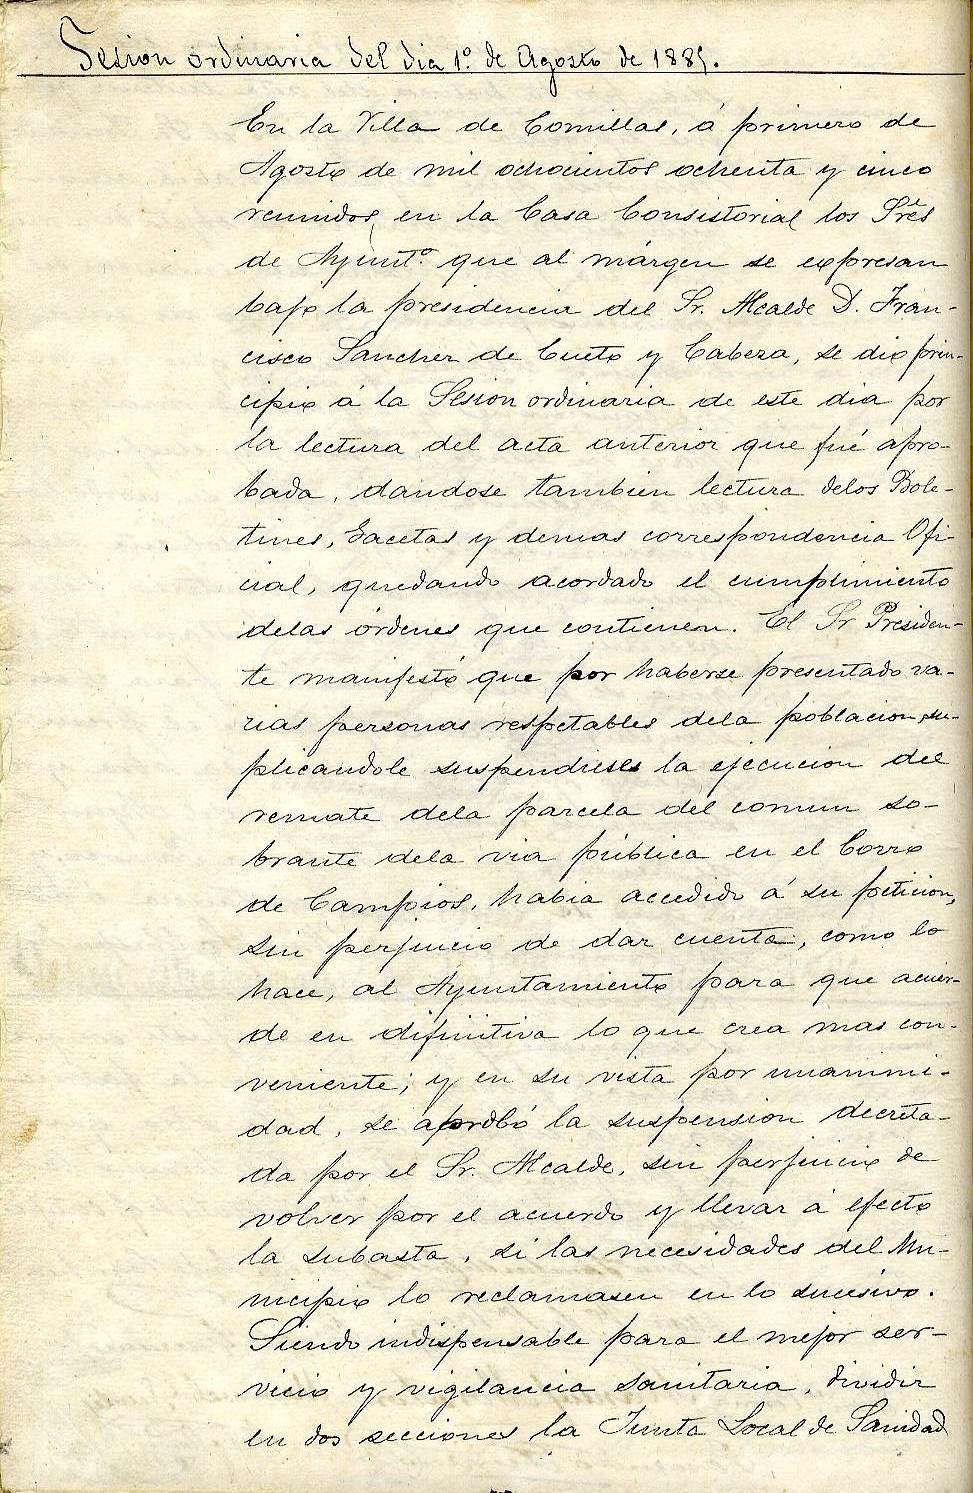 Sesion ordinaria del dia 1º. de Agosto de 1885.
En la Villa de Comillas, á primero de
Agosto de mil ochocientos ochenta y cinco
reunidos, en la Casa Consistorial los Sres
de Ayuntº. que al márgen se expresan
bajo la presidencia del Sr. Alcalde D. Fran-
cisco Sanchez de Cueto y Cabeza, se dio prin-
cipio á la Sesion ordinaria de este dia por
la lectura del acta anterior que fué apro-
bada, dandose tambien lectura delos Bole-
tines, Gacetas y demas correspondencia Ofi-
cial, quedando acordado el cumplimiento
delas órdenes que contienen. El Sr Presiden-
te manifestó que por haberse presentado va-
rias personas respetables dela poblacion, su-
plicandole suspendiese la ejecucion del
remate dela parcela del comun so-
brante dela via pública en el Corro
de Campios, habia accedido á su peticion,
sin perjuicio de dar cuenta, como lo
hace, al Ayuntamiento para que acuer-
de en difinitiva lo que crea mas con-
veniente; y en su vista por unanimi-
dad, se aprobó la suspension decreta-
da por el Sr. Alcalde, sin perjuicio de
volver por el acuerdo y llevar á efecto
la subasta, si las necesidades del Mu-
nicipio lo reclamasen en lo sucesivo.
Siendo indispensable para el mejor ser-
vicio y vigilancia sanitaria, dividir
en dos secciones la Junta Local de Sanidad